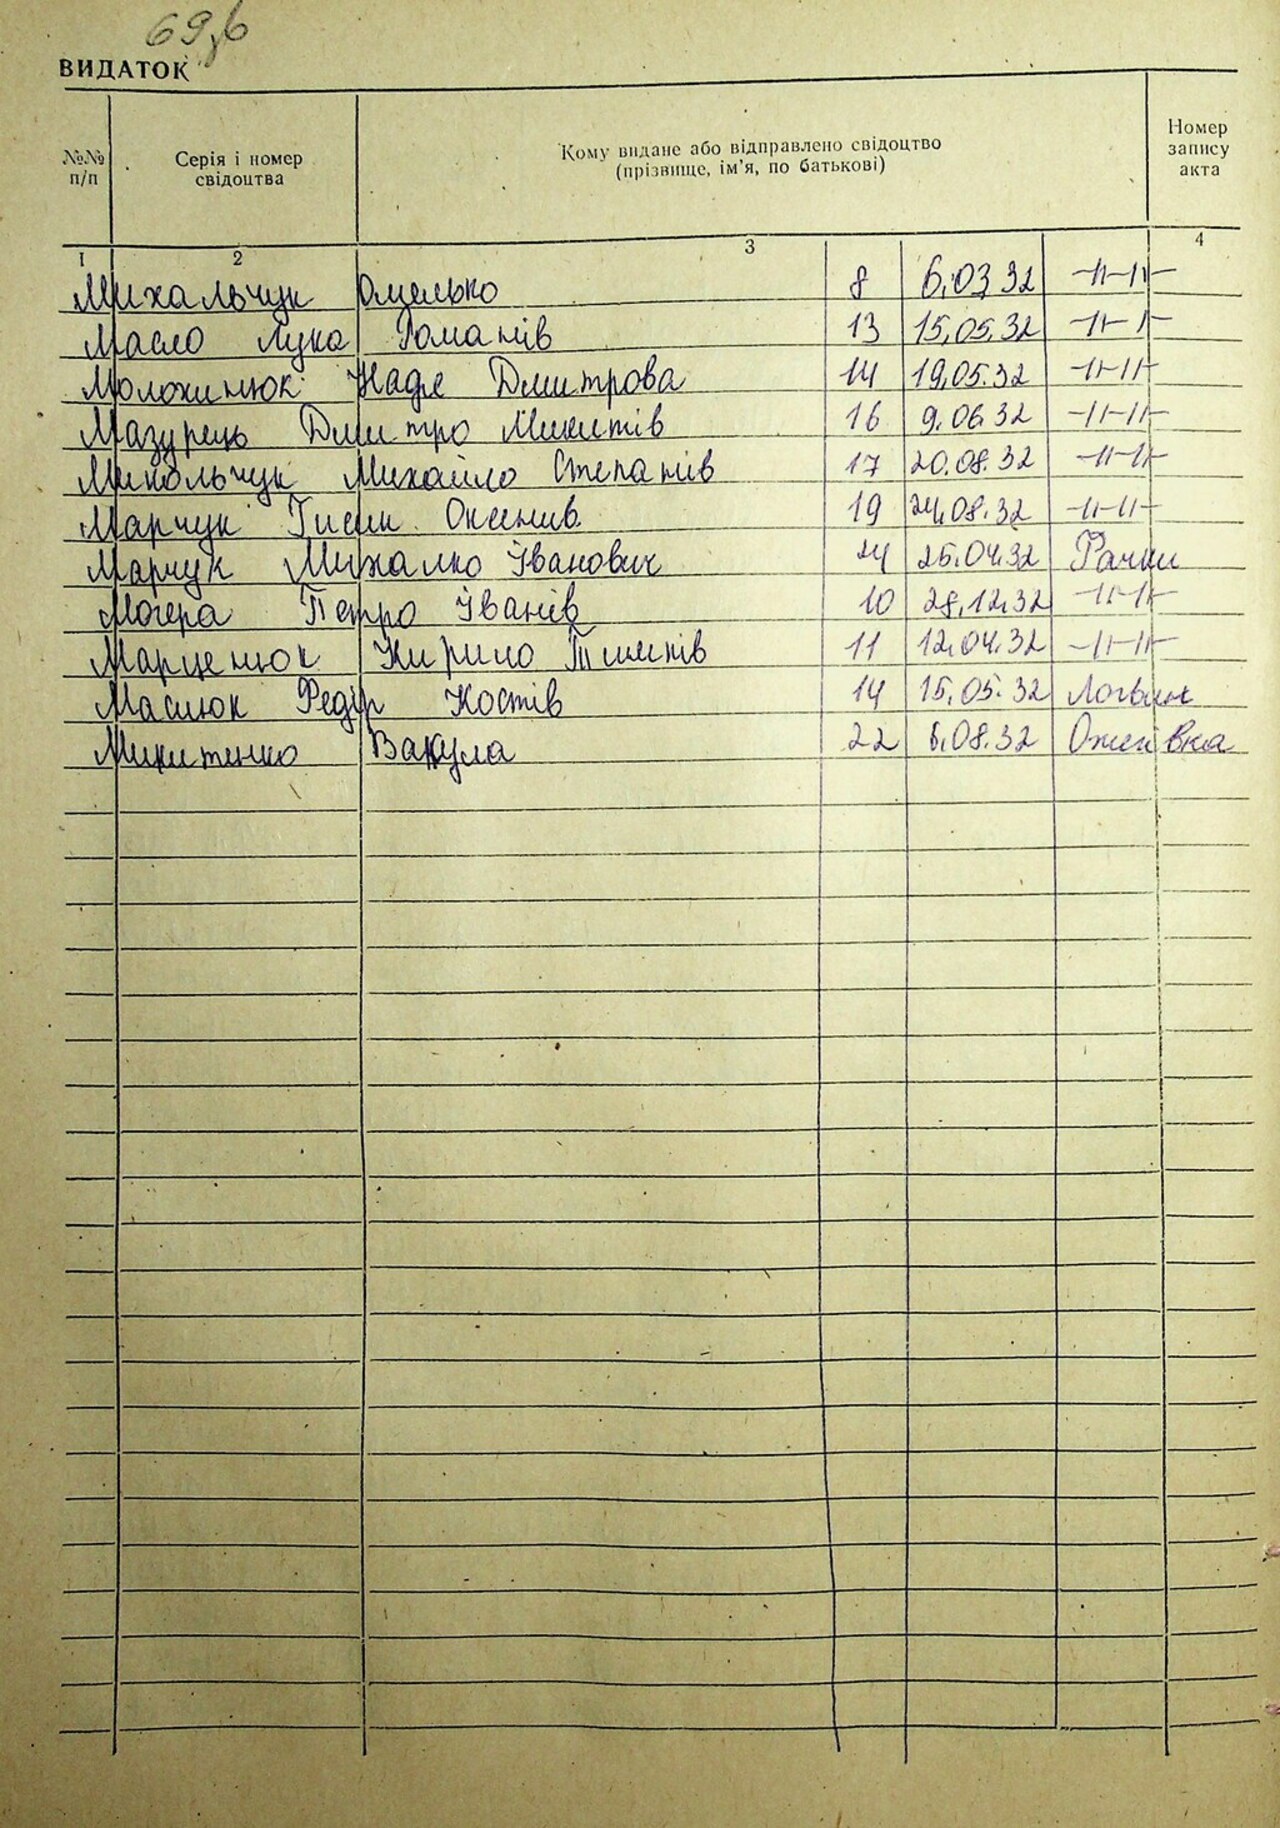 69,б
ВИДАТОК
№№ п/п
Серія і номер свідоцтва
Кому видане або відправлено свідоцтво (прізвище, ім'я, по батькові)
Номер запису акта
1 2 3 4
Михальчук Омелько 8 6.03 32 -11-11-
Масло Лука Романів 13 15.05.32 -11-11-
Молохинюк Надя Дмитрова 14 19.05.32 -11-11-
Мазурець Дмитро Микитів 16 9.06.32 -11-11-
Микольчук Михайло Степанів 17 20.08.32 -11-11-
Марчук 19 24.08.32 -11-11-
Марчук Михалко Іванович 24 25.04.32 Рачки
Могера Петро Іванів 10 28.12.32 -11-11-
Марценюк Кирило 11 12.04.32 -11-11-
Маслюк Федір Костів 14 15.05.32
Микитенко Вакула 22 6.08.32 Ожегівка